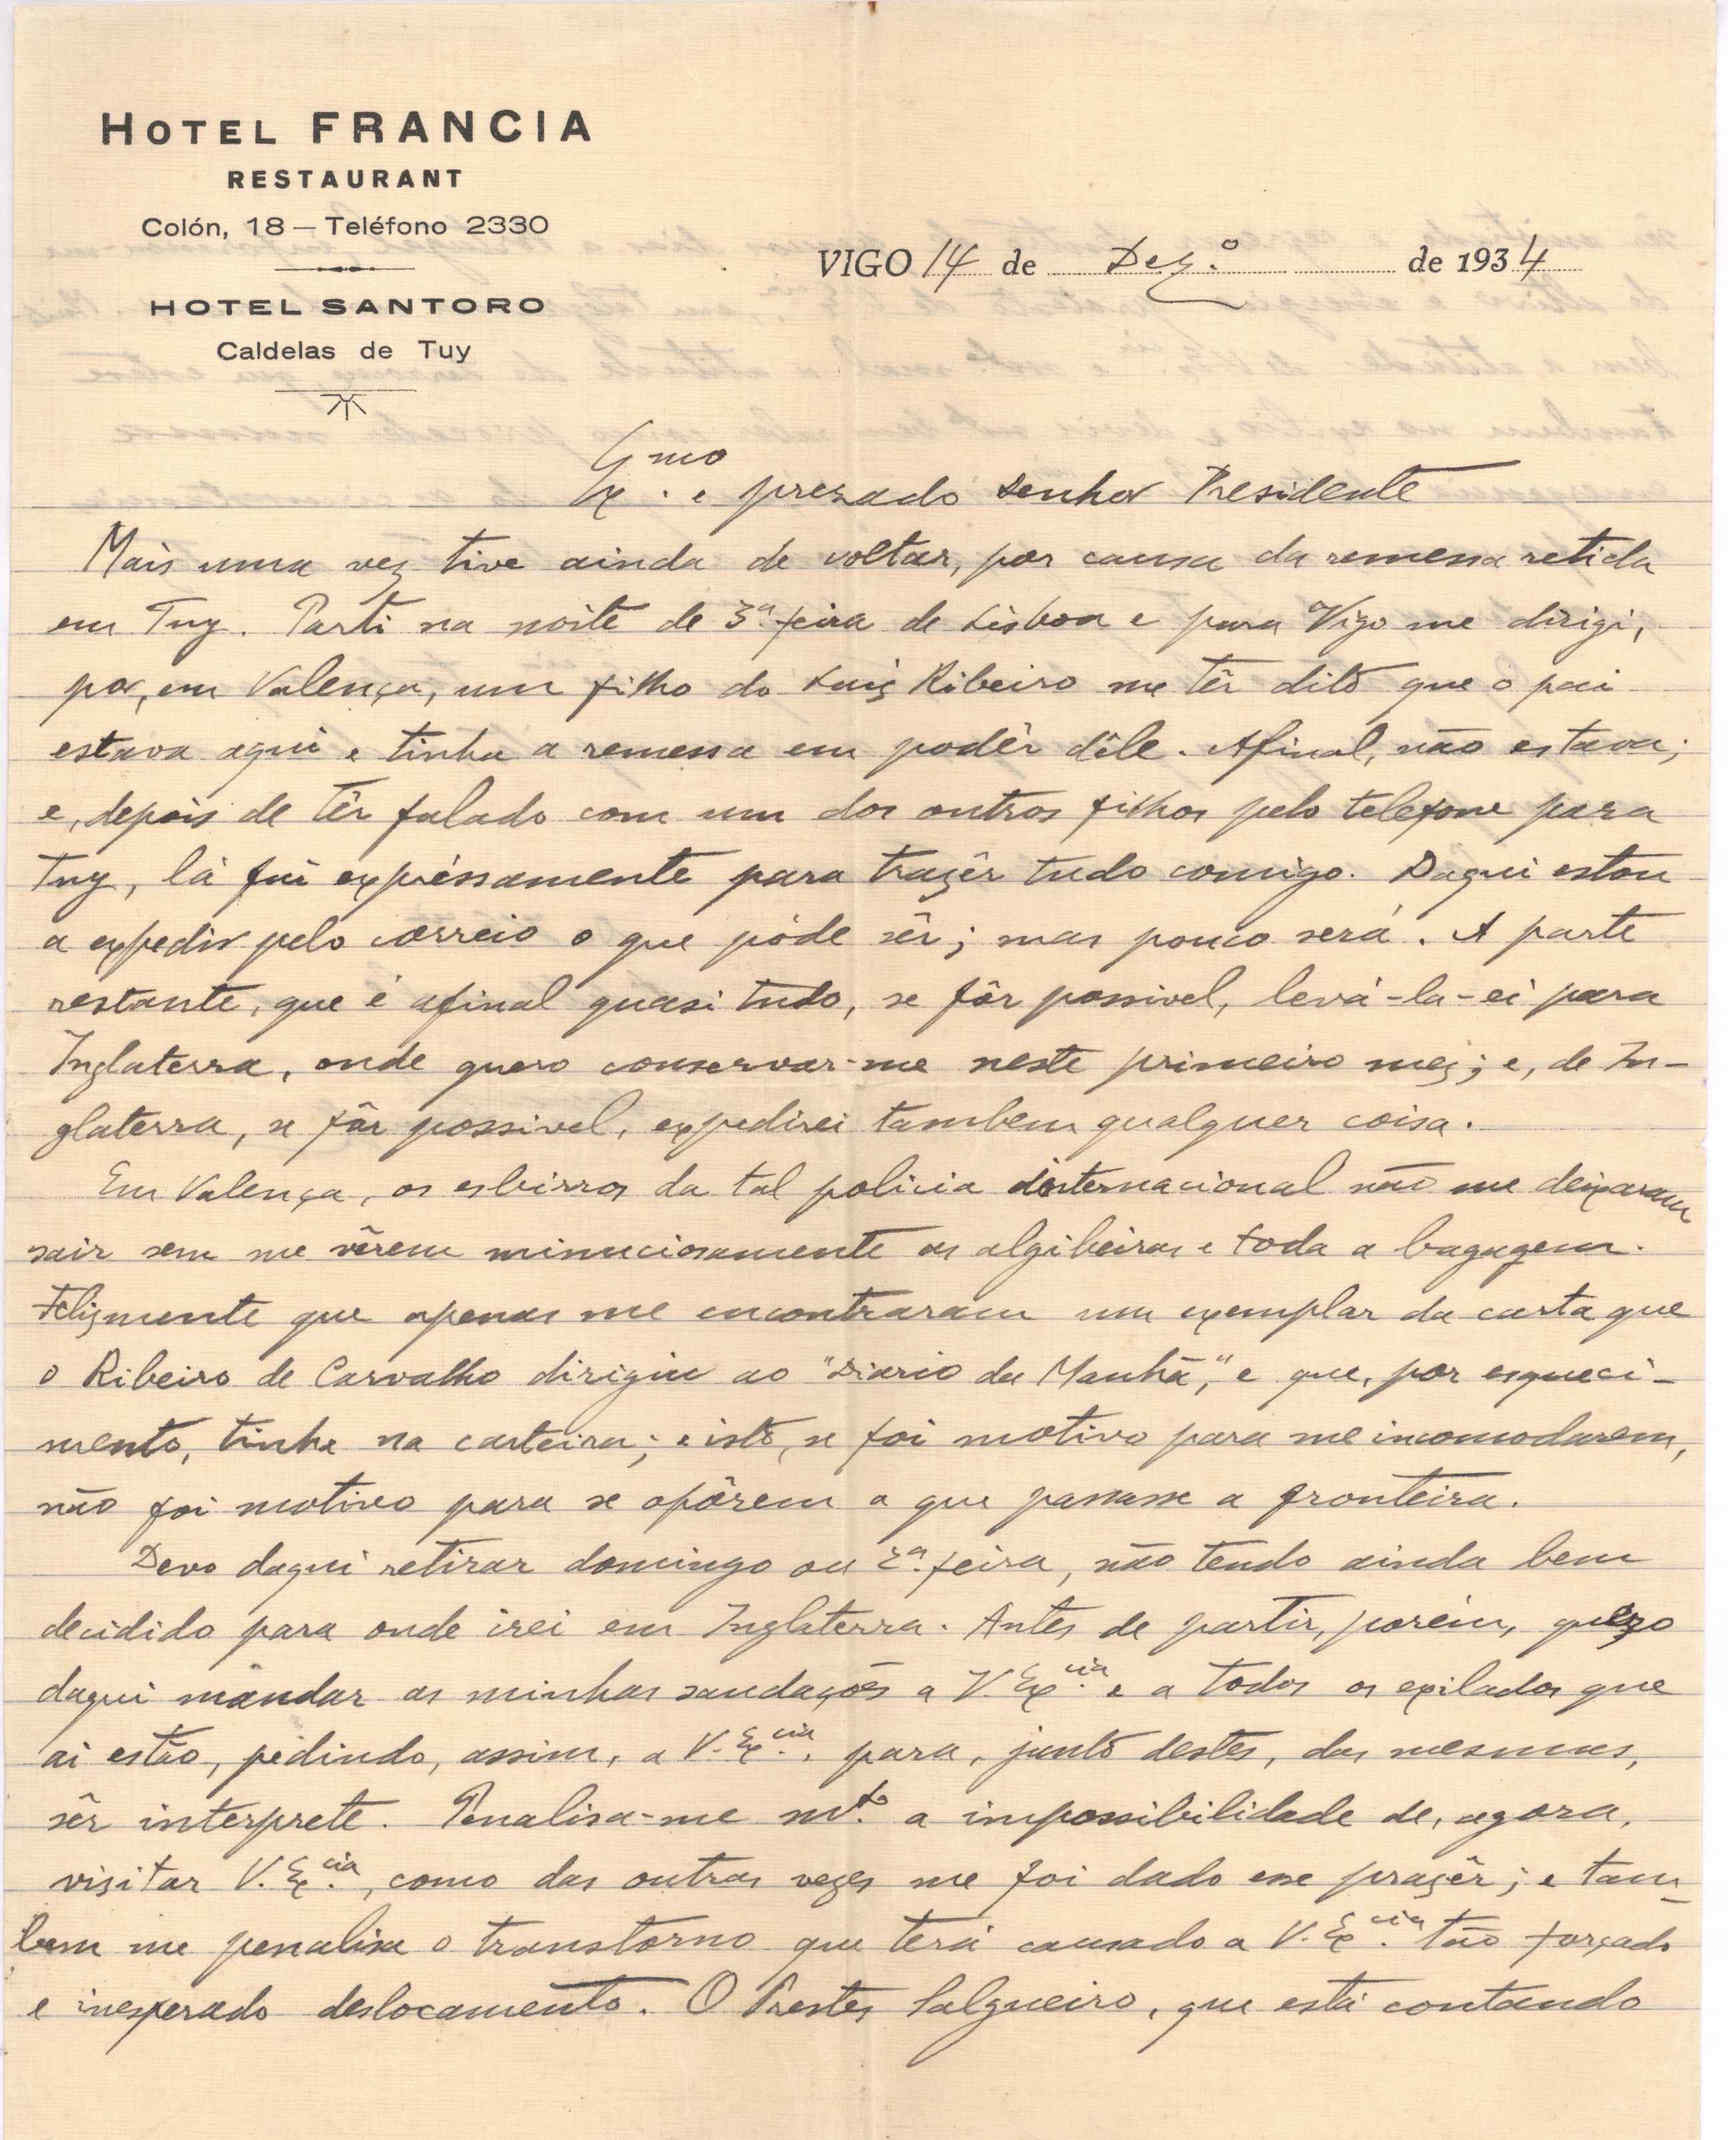 HOTEL FRANCIA
RESTAURANT
Colón, 18 — Teléfono 2330
HOTEL SANTORO
Caldelas de Tuy
VIGO 14 de Dez.º de 1934
Ex.mo e prezado Senhor Presidente
Mais uma vez tive ainda de voltar, por causa da remessa retida
em Tuy. Parti na noite de 3ª feira de Lisboa e para Vigo me dirigi,
por, em Valença, um filho do Luiz Ribeiro me têr dito que o pai
estava aqui e tinha a remessa em podêr dêle. Afinal, não estava;
e, depois de têr falado com um dos outros filhos pelo telefone para
Tuy, lá fui expréssamente para trazêr tudo comigo. Daqui estou
a expedir pelo correio o que póde sêr; mas pouco será. A parte
restante, que é afinal quasi tudo, se fôr possivel, levá-la-ei para
Inglaterra, onde quero conservar-me neste primeiro mez; e, de In-
glaterra, se fôr possivel, expedirei tambem qualquer coisa.
Em Valença, os esbirros da tal policia internacional não me deixaram
sair sem me vêrem minuciosamente as algibeiras e toda a bagagem.
Felizmente que apenas me encontraram um exemplar da carta que
o Ribeiro de Carvalho dirigiu ao "Diario da Manhã", e que, por esqueci-
mento, tinha na carteira; e isto, se foi motivo para me incomodarem,
não foi motivo para se opôrem a que passasse a fronteira.
Devo daqui retirar domingo ou 2ª. feira, não tendo ainda bem
decidido para onde irei em Inglaterra. Antes de partir, porém, quero
daqui mandar as minhas saudações a V. Ex.cia e a todos os exilados que
aí estão, pedindo, assim, a V. Ex.cia, para, junto destes, das mesmas,
sêr interprete. Penalisa-me mt.º a impossibilidade de, agora,
visitar V. Ex.cia, como das outras vezes me foi dado esse prazêr; e tam-
bem me penalisa o transtorno que terá causado a V. Ex.cia tão forçado
e inesperado deslocamento. O Prestes Salgueiro, que está contando